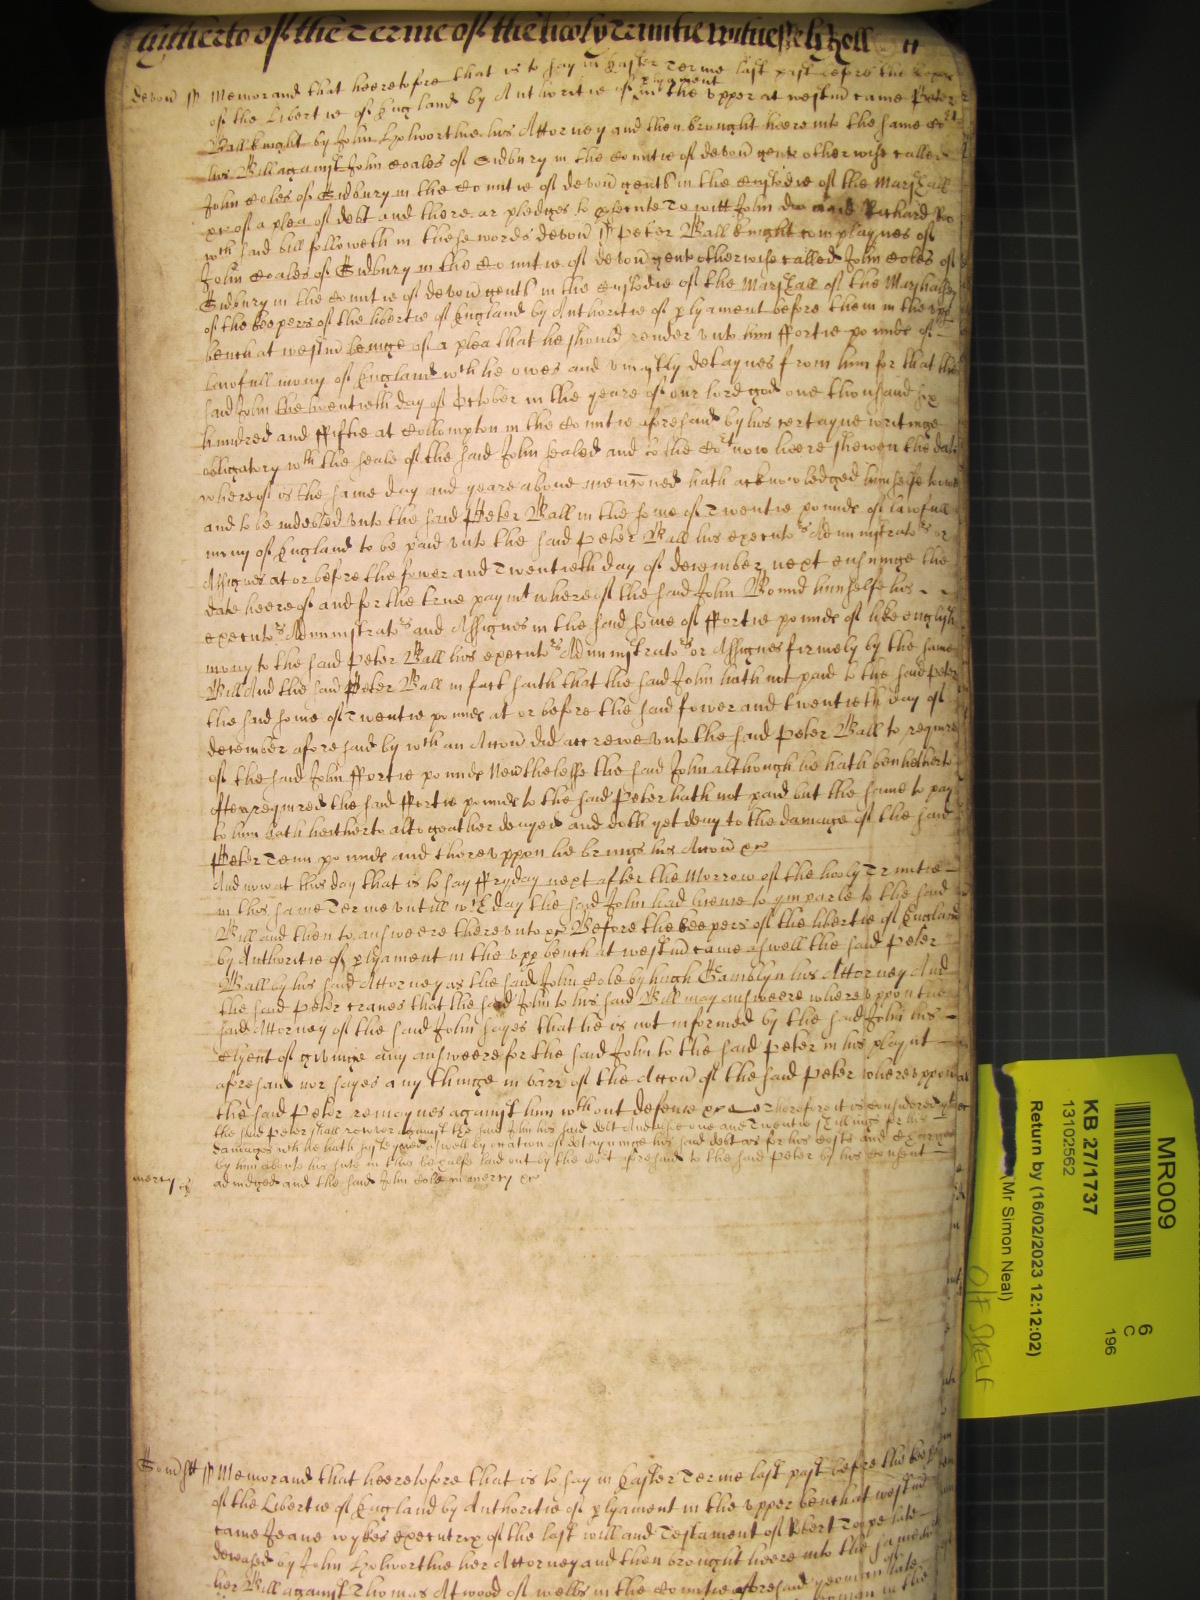 hitherto of the Terme of the holy Trinitie witnes H Roll
devon ss Memorand that heeretofore that is to say in Easter Terme last past before the Keeps
of the Libertie of England by Authoritie of plyament in the upper at westmr came Peter
Ball knight by John Holworthie his Attorney and then brought heere into the same Cort
his Bill against John Coales of Sidbury in the Countie of devon gent otherwise called
John Coles of Sidbury in the Countie of devon gent in the Custodie of the Marshall
xc of a plea of debt and there ar pledges to psecute To witt John doo and Richard Roo
wch said bill followeth in these words devon ss Peter Ball knight complaynes of
John Coales of Sidbury in the Countie of devon gent otherwise called John Coles of
Sidbury in the Countie of devon gent in the Custodie of the Marshall of the Marshalsy
of the keepers of the libertie of England by Authoritie of plyament before them in the upp
bench at westmr beinge of a plea that he should render unto him ffortie pounds of
lawfull mony of England wch he owes and uniustly detaynes from him for that the
said John the twentieth day of October in the yeare of our lord god one thousand six
hundred and ffiftie at Collompton in the Countie aforesaid by his certayne writinge
obligatory wth the seale of the said John sealed and to the Cort now heere shewen the date
whereof is the same day and yeare above menconed hath acknowledged himselfe to owe
and to be indebted unto the said Peter Ball in the some of Twentie pounds of lawfull
mony of England to be paid unto the said Peter Ball his executors Administrators or
Assignes at or before the fower and Twentieth day of december next ensuinge the
date heereof and for the true paymt whereof the said John Bound himselfe his
executors Administrators and Assignes in the said some of ffortie pounds of like english
mony to the said Peter Ball his executors Administrators or Assignes firmely by the same
Bill And the said Peter Ball in fact saith that the said John hath not paid to the said Peter
the said some of Twentie pounds at or before the said fower and twentieth day of
december aforesaid by wch an Accon did accrewe unto the said Peter Ball to require
of the said John ffortie pounds Neverthelesse the said John although he hath ben hitherto
often required the said ffortie pounds to the said Peter hath not paid but the same to pay
to him hath heitherto altogeather denyed and doth yet deny to the damage of the said
Peter Tenn pounds and thereuppon he brings his Accon xc
And now at this day that is to say ffryday next after the Morrow of the hooly Trinitie
in this same Terme untill wch day the said John had licence to ymparle to the said
Bill and then to answeere thereunto xc Before the keepers of the libertie of England
by Authoritie of plyament in the upp bench at westmr came aswell the said Peter
Ball by his said Attorney as the said John Cole by hugh Gamblyn his Attorney And
the said Peter craves that the said John to his said Bill may answeere whereuppon the
said Attorney of the said John sayes that he is not informed by the said John his
Clyent of givinge any answeere for the said John to the said Peter in his playnt
aforesaid nor sayes any thinge in barr of the Accon of the said Peter whereuppon
the said Peter remaynes against him wthout defence xc Therefore it is considered that
the said Peter shall recover against the said John his said debt And alsoe one and Twentie shillings for his
damages wch he hath susteyned aswell by occasion of detayninge his said debt as for his costs and Charges
by him about his sute in this behalfe laid out by the Cort aforesaid to the said Peter by his Consent
mercy adiudged and the said John Cole in mercy xc
Somst ss Memorand that heeretofore that is to say in Easter Terme last past before the keeps
of the Libertie of England by Authoritie of plyament in the upper bench at westmr
came Jeane wykes executrix of the last will and Testament of Robert late
deceased by John Holworthie her Attorney and then brought heere into the same
her Bill against Thomas Atwood of wells in the Countie aforesaid yeoman late
MR009
KB 27/1737
13102562
Return by (16/02/2023 12:12:02)
Mr Simon Neal)
6
C
196
O/F SHELF